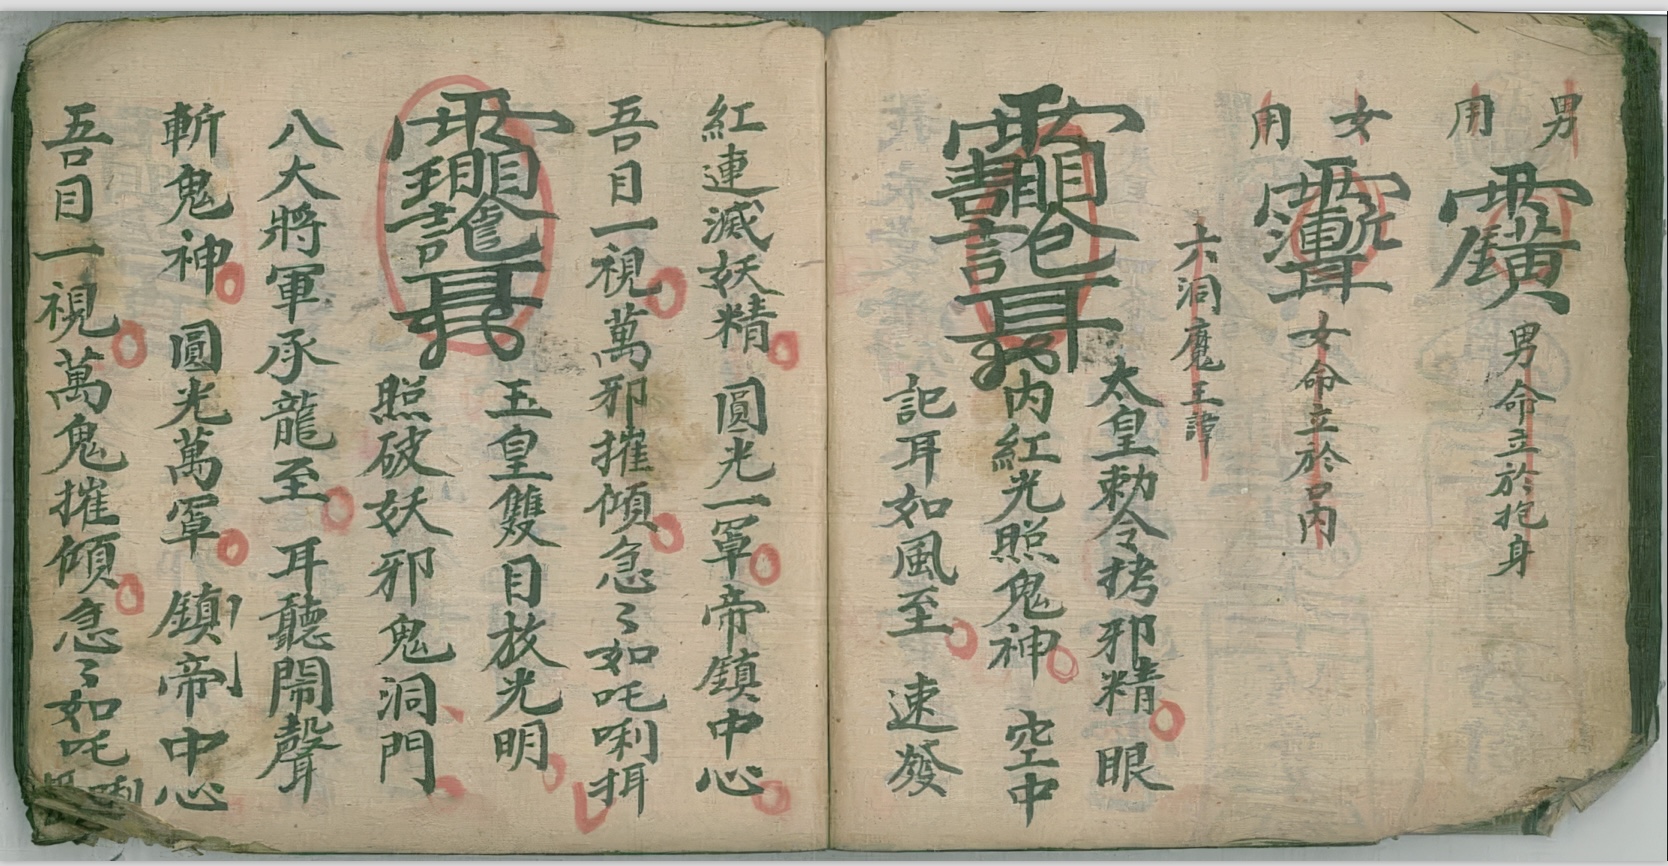 男用
男命立於抱身
女用
女命立於內
六洞魔王諱
太皇勅令拷邪精 眼
內紅光照鬼神 空中
記耳如風至 速發
紅連滅妖精 圓光一罩帝鎮中心
吾目一視萬邪摧傾急〻如吒唎𢬿
玉皇雙目放光明
照破妖邪鬼洞門
八大將軍承龍至 耳聽鬧聲
斬鬼神 圓光萬罩 鎮帝中心
吾目一視萬鬼摧傾急〻如吒唎